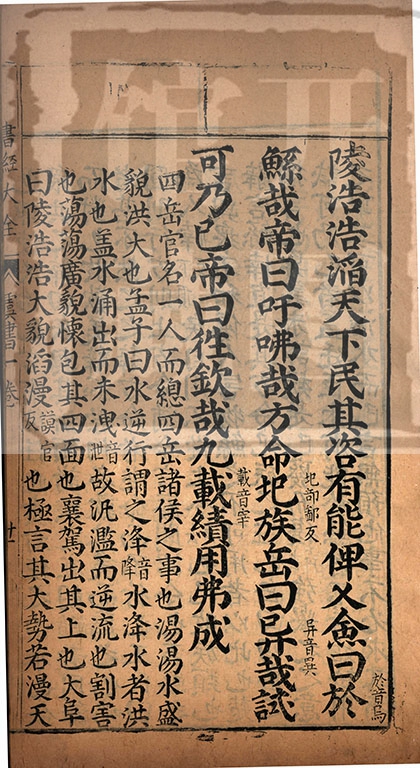 陵浩浩滔天下民其咨有能俾乂僉曰於於音烏
鯀哉帝曰吁咈哉方命圯圯部鄙反族岳曰异异音異哉試
可乃已帝曰徃欽哉九載載音宰績用弗成
四岳官名一人而總四岳諸侯之事也湯湯水盛
貌洪大也孟子曰水逆行謂之洚音降水洚水者洪
水也盖水涌出而未洩音泄故汎濫而逆流也割害
也蕩蕩廣貌懷包其四面也襄駕出其上也大阜
曰陵浩浩大貌滔漫謨官反也極言其大勢若漫天
書經大全
虞書一卷
廿一